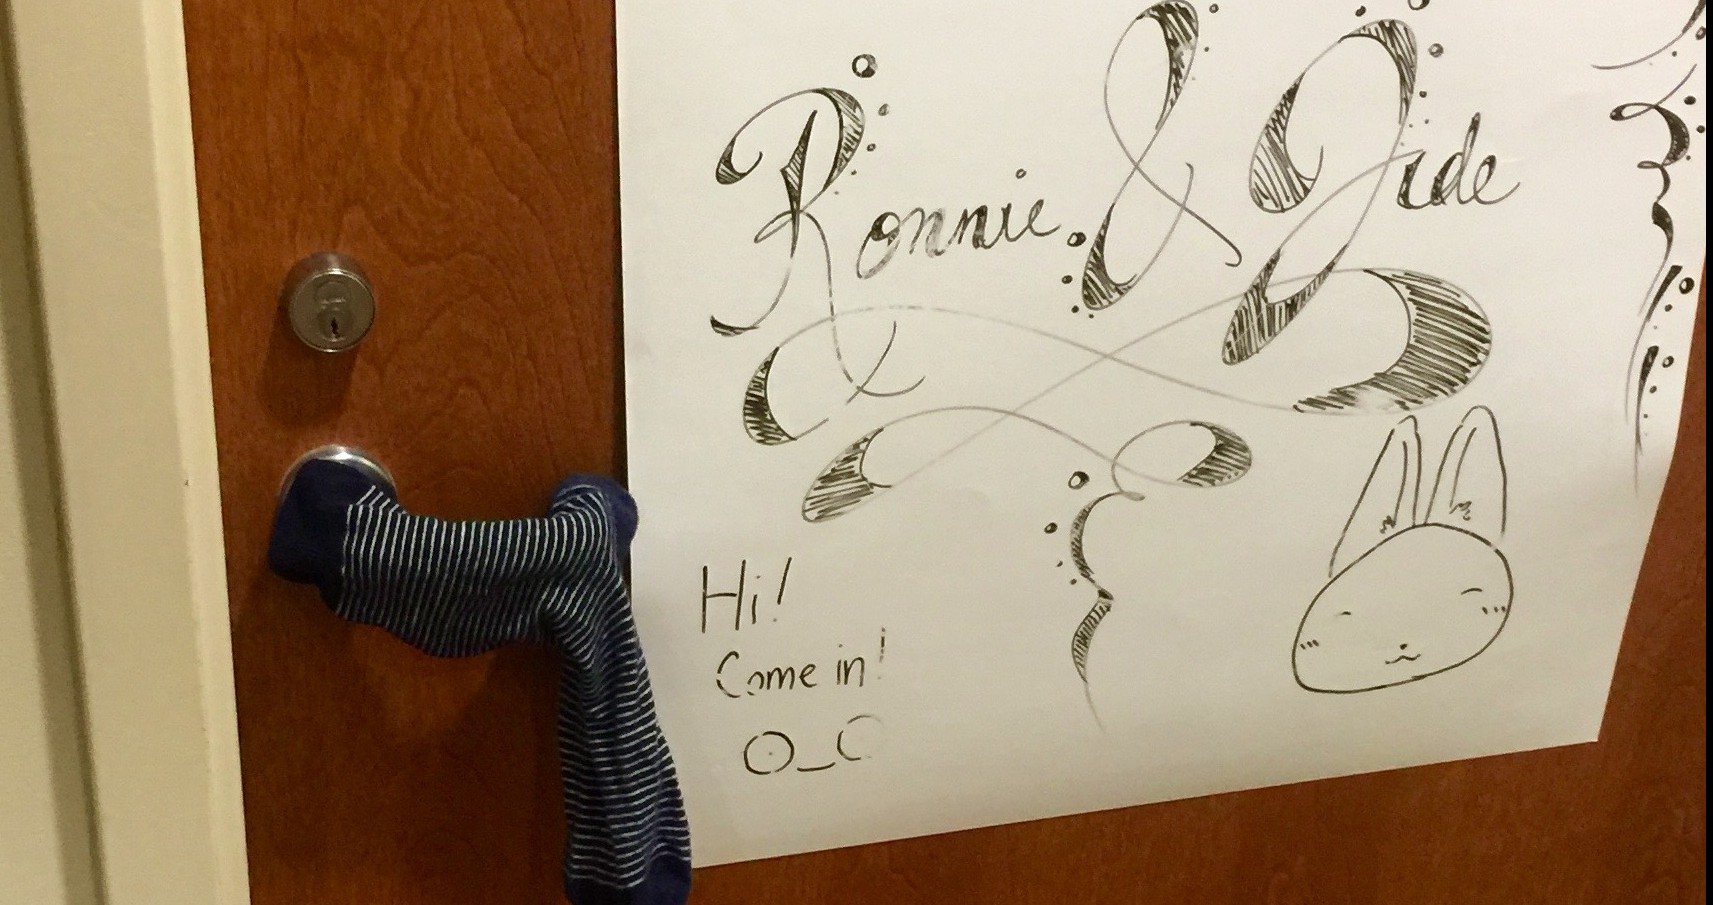 Ronnie & Jude
Hi!
Come in!
O_O